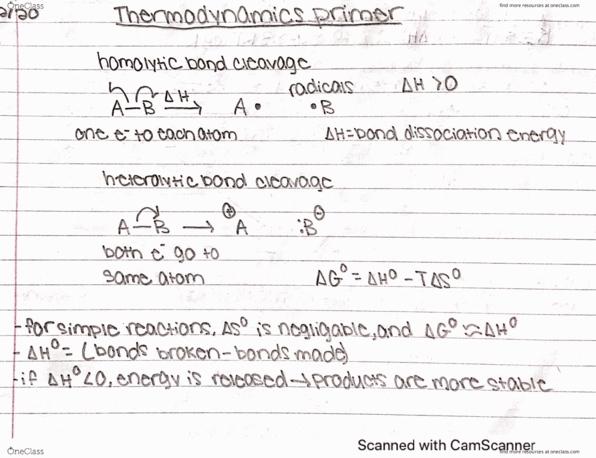 OneClass
find more resources at oneclass.com
2/20
Thermodynamics primer
homolytic bond cleavage
radicals ΔH >0
A–B ΔH → A• •B
one e⁻ to each atom ΔH=bond dissociation energy
heterolytic bond cleavage
A–B → ⊕A :B⊖
both e⁻ go to
same atom ΔG° = ΔH° - TΔS°
- for simple reactions, ΔS° is negligable, and ΔG° ≈ ΔH°
- ΔH° = (bonds broken - bonds made)
- if ΔH° <0, energy is released → products are more stable
Scanned with CamScanner
OneClass
find more resources at oneclass.com